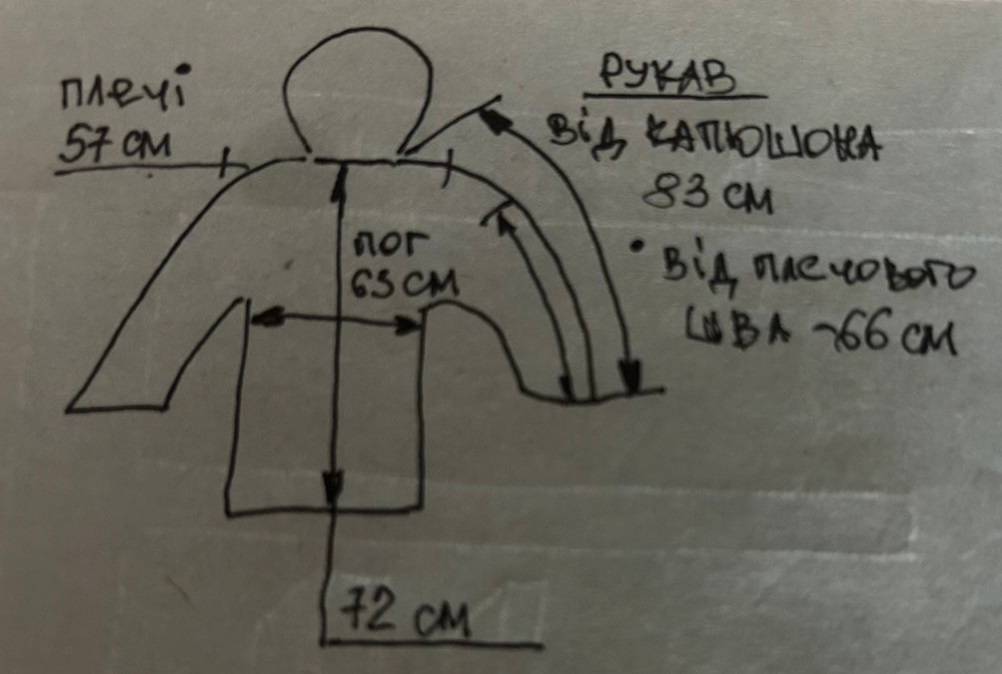 плечі
57 см
РУКАВ
від капюшона
83 см
• від плечового
шва ~66 см
пог
65 см
72 см